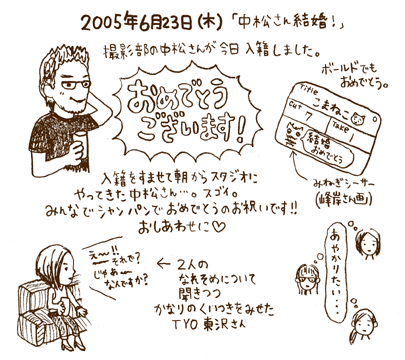 2005年6月23日(木)「中松さん結婚！」
撮影部の中松さんが今日入籍しました。
おめでとう
ございます！
ボールドでも
おめでとう。
Title
こまねこ
CUT
7
Take
1
結婚
おめでとう
みねぎシーサー
(峰岸さん画)
入籍をすませて朝からスタジオに
やってきた中松さん…。スゴイ。
みんなでシャンパンでおめでとうのお祝いです!!
おしあわせに♡
え〜!!
それで?
じゃあ〜
なんですか?
← 2人の
なれそめについて
聞きつつ
かなりのくいつきをみせた
TYO 東沢さん
あやかりたい・・・